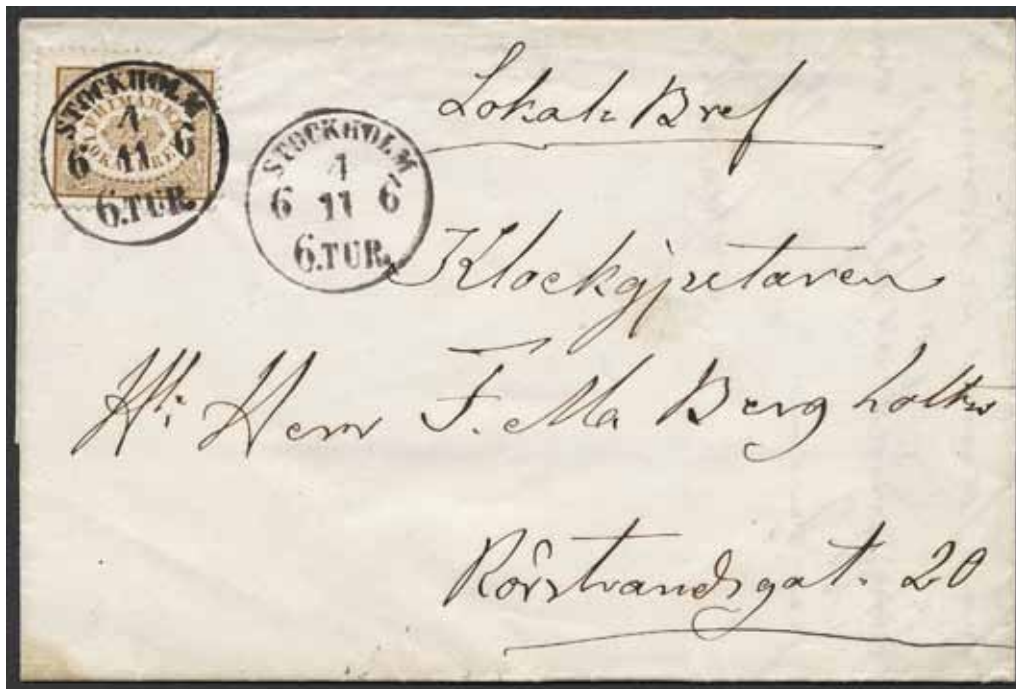 STOCKHOLM
1
6 11 6
6.TUR.
FRIMÄRKE
LOKALBREF
STOCKHOLM
1
6 11 6
6.TUR.
Lokal=Bref
Klockgjutaren
Herr F. Ma Bergholtz
Rörstrandsgat. 20